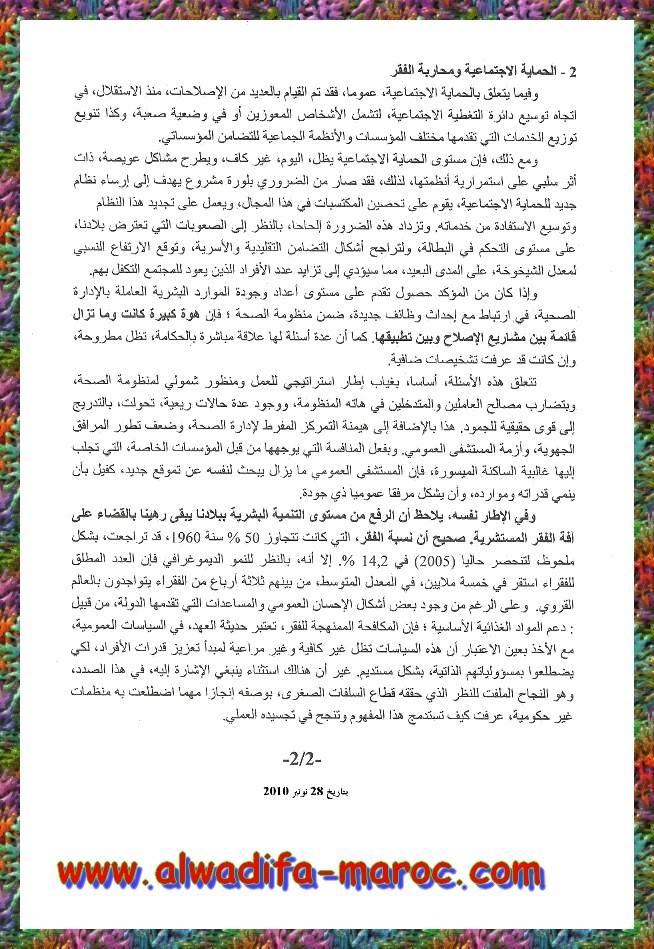 2 - الحماية الاجتماعية ومحاربة الفقر
وفيما يتعلق بالحماية الاجتماعية، عموما، فقد تم القيام بالعديد من الإصلاحات، منذ الاستقلال، في
اتجاه توسيع دائرة التغطية الاجتماعية، لتشمل الأشخاص المعوزين أو في وضعية صعبة، وكذا تنويع
توزيع الخدمات التي تقدمها مختلف المؤسسات والأنظمة الجماعية للتضامن المؤسساتي.
ومع ذلك، فإن مستوى الحماية الاجتماعية يظل، اليوم، غير كاف، ويطرح مشاكل عويصة، ذات
أثر سلبي على استمرارية أنظمتها، لذلك، فقد صار من الضروري بلورة مشروع يهدف إلى إرساء نظام
جديد للحماية الاجتماعية، يقوم على تحصين المكتسبات في هذا المجال، ويعمل على تجديد هذا النظام
وتوسيع الاستفادة من خدماته. وتزداد هذه الضرورة إلحاحا، بالنظر إلى الصعوبات التي تعترض بلادنا،
على مستوى التحكم في البطالة، ولتراجح أشكال التضامن التقليدية والأسرية، وتوقع الارتفاع النسبي
لمعدل الشيخوخة، على المدى البعيد، مما سيؤدي إلى تزايد عدد الأفراد الذين يعود للمجتمع التكفل بهم.
وإذا كان من المؤكد حصول تقدم على مستوى أعداد وجودة الموارد البشرية العاملة بالإدارة
الصحية، في ارتباط مع إحداث وظائف جديدة، ضمن منظومة الصحة ؛ فإن هوة كبيرة كانت وما تزال
قائمة بين مشاريع الإصلاح وبين تطبيقها. كما أن عدة أسئلة لها علاقة مباشرة بالحكامة، تظل مطروحة،
وإن كانت قد عرفت تشخيصات ضافية.
تتعلق هذه الأسئلة، أساسا، بغياب إطار استراتيجي للعمل ومنظور شمولي لمنظومة الصحة،
وبتضارب مصالح العاملين والمتدخلين في هاته المنظومة، ووجود عدة حالات ريعية، تحولت، بالتدريج
إلى قوى حقيقية للجمود. هذا بالإضافة إلى هيمنة التمركز المفرط لإدارة الصحة، وضعف تطور المرافق
الجهوية، وأزمة المستشفى العمومي. وبفعل المنافسة التي يوجهها من قبل المؤسسات الخاصة، التي تجلب
إليها غالبية الساكنة الميسورة، فإن المستشفى العمومي ما يزال يبحث لنفسه عن تموقع جديد، كفيل بأن
ينمي قدراته وموارده، وأن يشكل مرفقا عموميا ذي جودة.
وفي الإطار نفسه، يلاحظ أن الرفع من مستوى التنمية البشرية ببلادنا يبقى رهينا بالقضاء على
آفة الفقر المستشرية. صحيح أن نسبة الفقر، التي كانت تتجاوز 50 % سنة 1960، قد تراجعت، بشكل
ملحوظ، لتنحصر حاليا (2005) في 14,2 %. إلا أنه، بالنظر للنمو الديموغرافي فإن العدد المطلق
للفقراء استقر في خمسة ملايين، في المعدل المتوسط، من بينهم ثلاثة أرباع من الفقراء يتواجدون بالعالم
القروي. وعلى الرغم من وجود بعض أشكال الإحسان العمومي والمساعدات التي تقدمها الدولة، من قبيل
: دعم المواد الغذائية الأساسية ؛ فإن المكافحة الممنهجة للفقر، تعتبر حديثة العهد، في السياسات العمومية،
مع الأخذ بعين الاعتبار أن هذه السياسات تظل غير كافية وغير مراعية لمبدأ تعزيز قدرات الأفراد، لكي
يضطلعوا بمسؤولياتهم الذاتية، بشكل مستديم. غير أن هنالك استثناء ينبغي الإشارة إليه، في هذا الصدد،
وهو النجاح الملفت للنظر الذي حققه قطاع السلفات الصغرى، بوصفه إنجازا مهما اضطلعت به منظمات
غير حكومية، عرفت كيف تستدمج هذا المفهوم وتنجح في تجسيده العملي.
-2/2-
بتاريخ 28 نونبر 2010
www.alwadifa-maroc.com